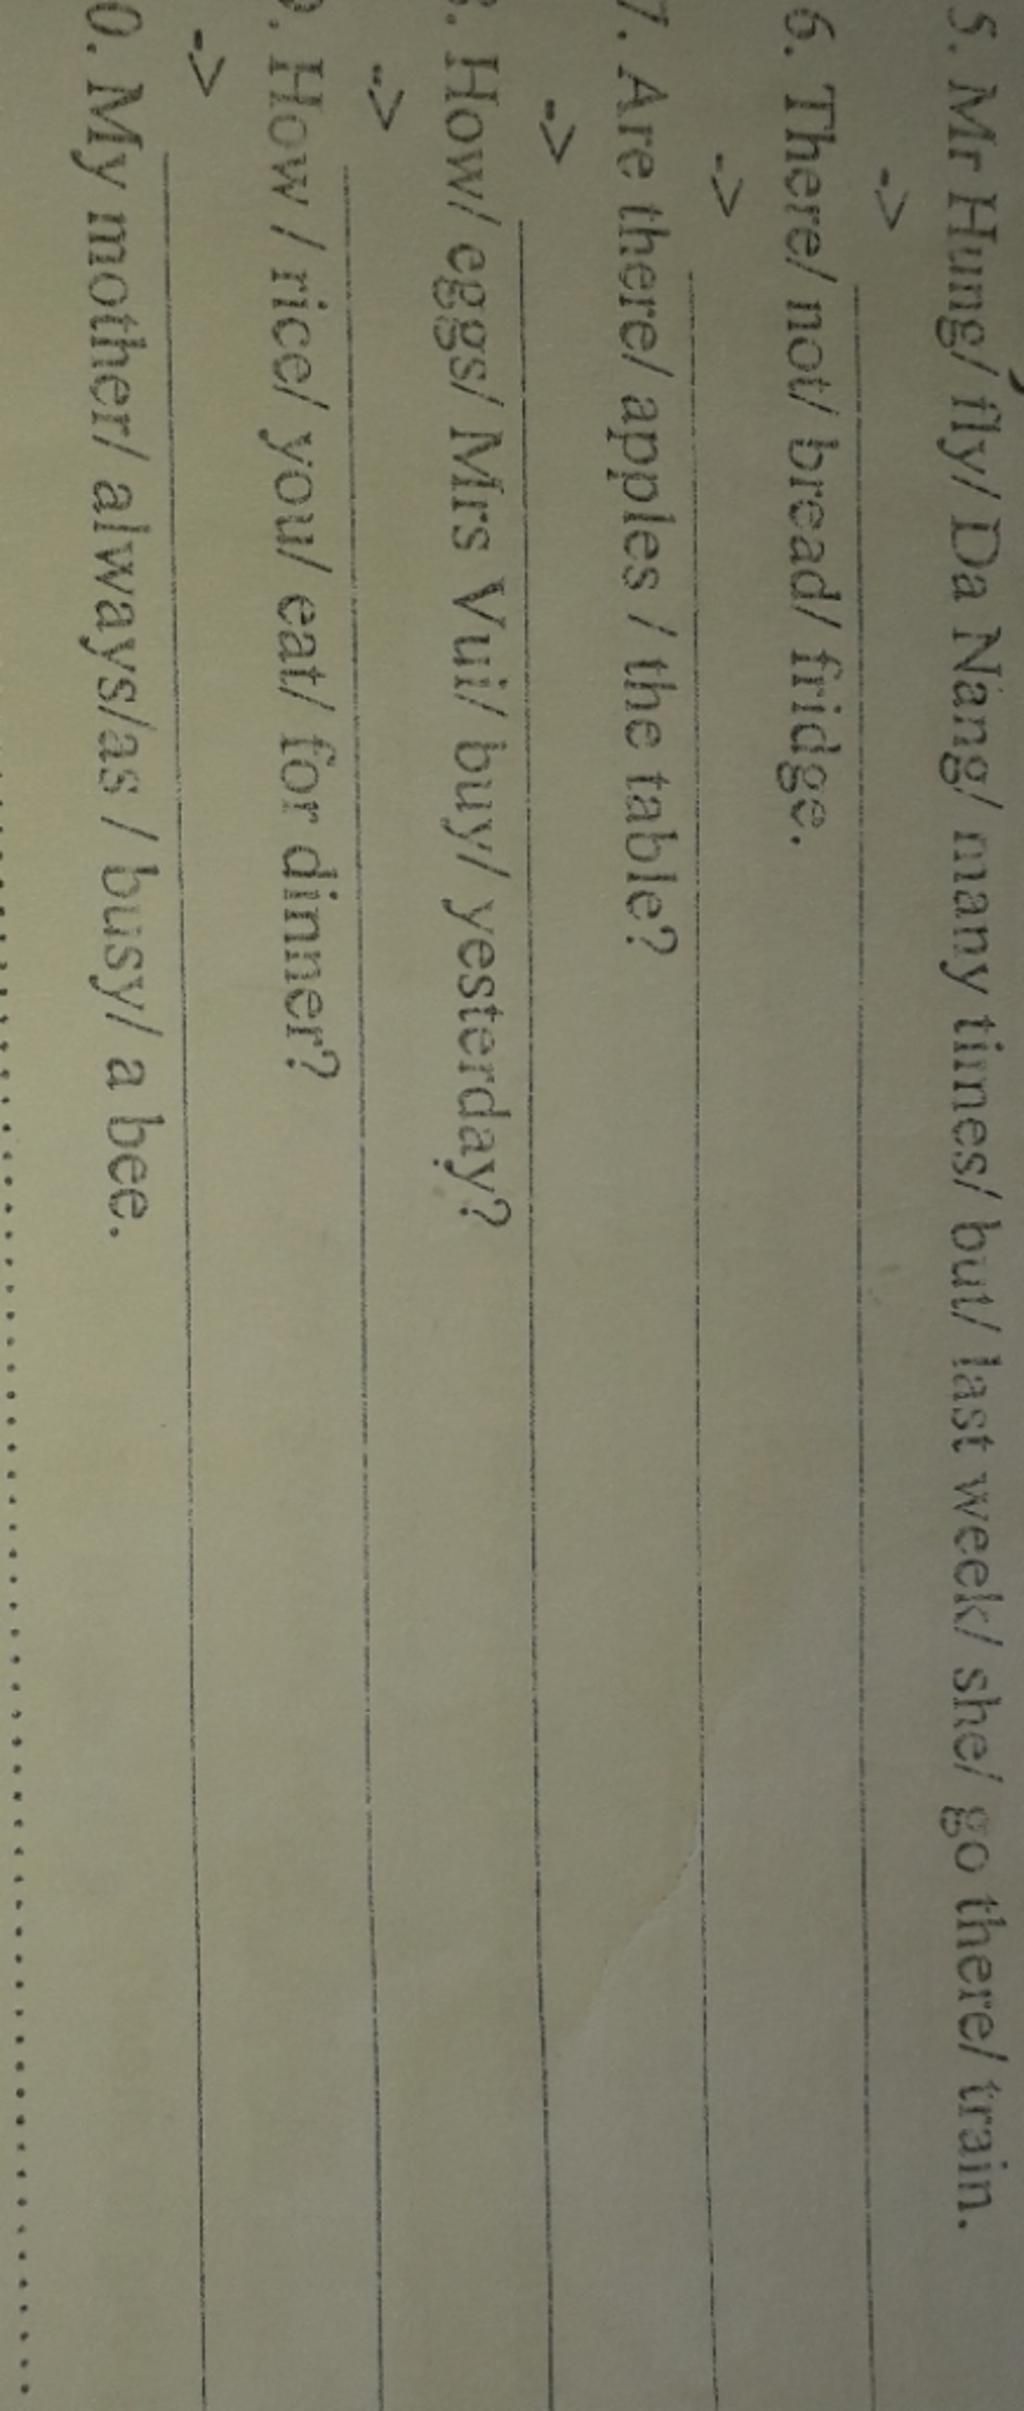 5. Mr Hung/ fly/ Da Nang/ many times/ but/ last week/ she/ go there/ train.
->
6. There/ not/ bread/ fridge.
->
7. Are there/ apples / the table?
->
. How/ eggs/ Mrs Vui/ buy/ yesterday?
->
. How / rice/ you/ eat/ for dinner?
->
0. My mother/ always/as / busy/ a bee.